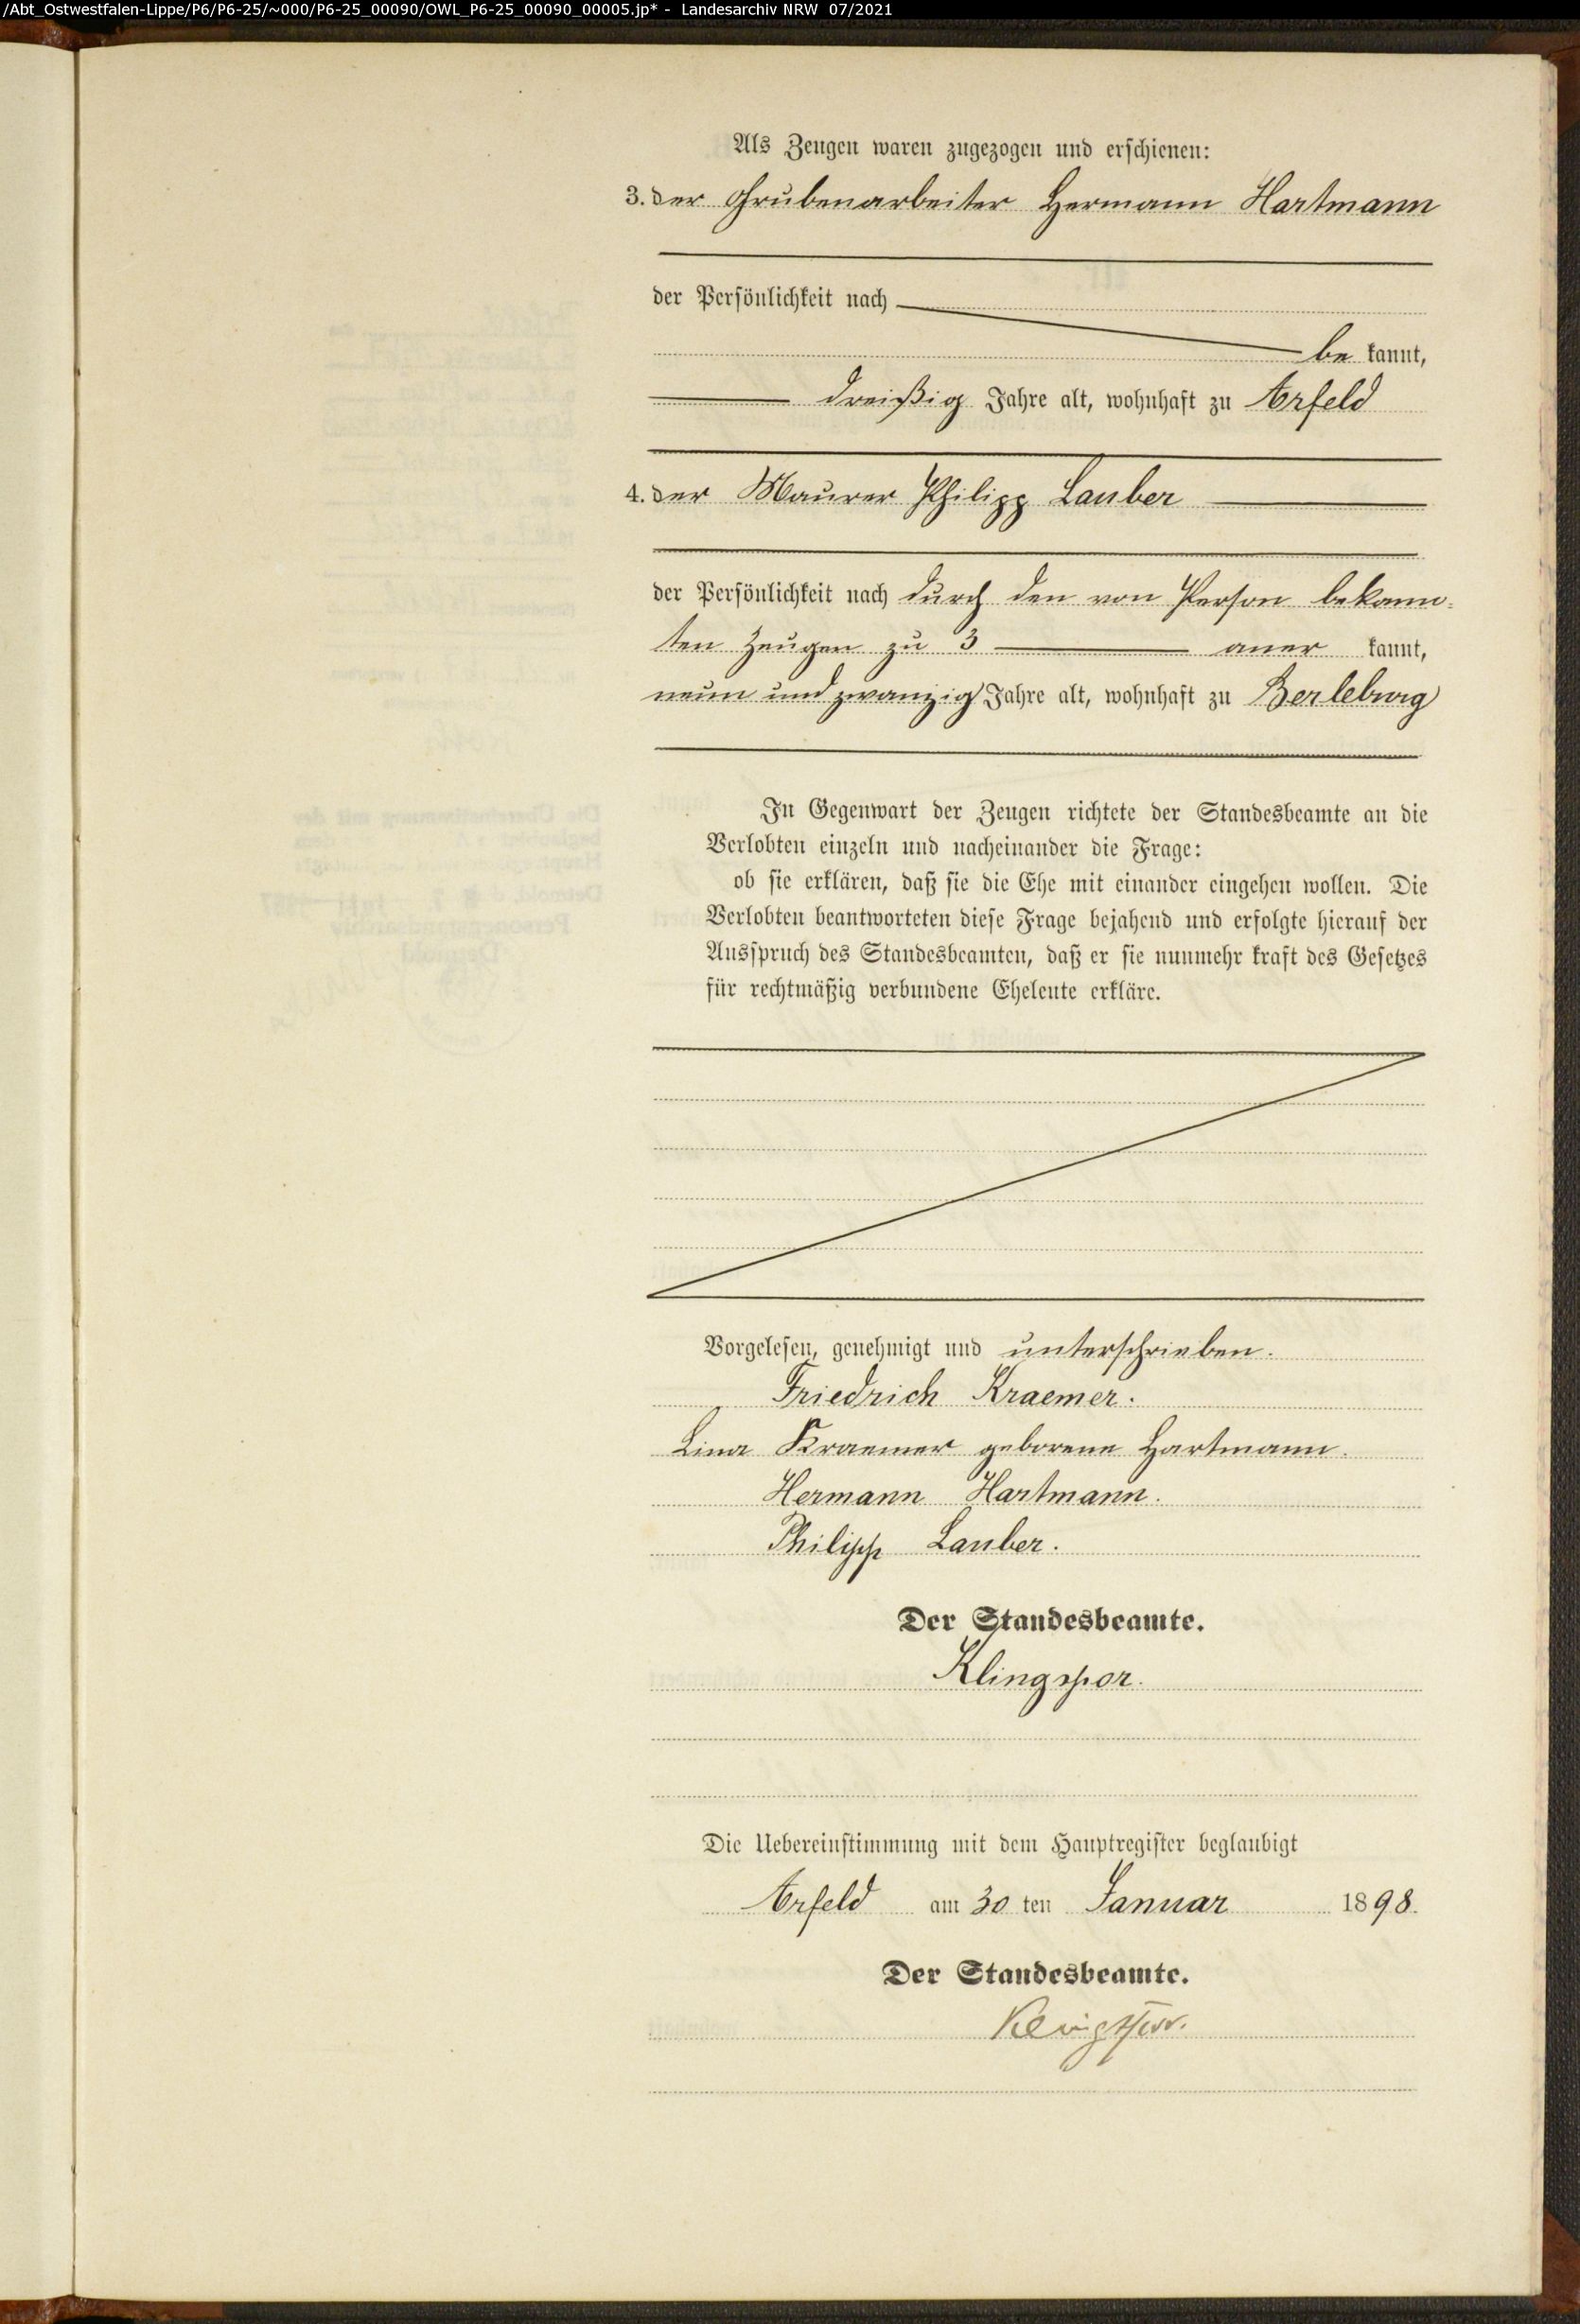 /Abt_Ostwestfalen-Lippe/P6/P6-25/~000/P6-25_00090/OWL_P6-25_00090_00005.jp* - Landesarchiv NRW 07/2021
Als Zeugen waren zugezogen und erschienen:
3. der Grubenarbeiter Hermann Hartmann
der Persönlichkeit nach
be kannt,
dreißig Jahre alt, wohnhaft zu Arfeld
4. der Maurer Philipp Lauber
der Persönlichkeit nach durch den von Person bekann-
ten Zeugen zu 3 aner kannt,
neun und zwanzig Jahre alt, wohnhaft zu Berleburg
In Gegenwart der Zeugen richtete der Standesbeamte an die
Verlobten einzeln und nacheinander die Frage:
ob sie erklären, daß sie die Ehe mit einander eingehen wollen. Die
Verlobten beantworteten diese Frage bejahend und erfolgte hierauf der
Ausspruch des Standesbeamten, daß er sie nunmehr kraft des Gesetzes
für rechtmäßig verbundene Eheleute erkläre.
Vorgelesen, genehmigt und unterschrieben.
Friedrich Kraemer.
Lina Kraemer geborene Hartmann.
Hermann Hartmann.
Philipp Lauber.
Der Standesbeamte.
Klingspor.
Die Uebereinstimmung mit dem Hauptregister beglaubigt
Arfeld am 30 ten Januar 1898.
Der Standesbeamte.
Klingspor.